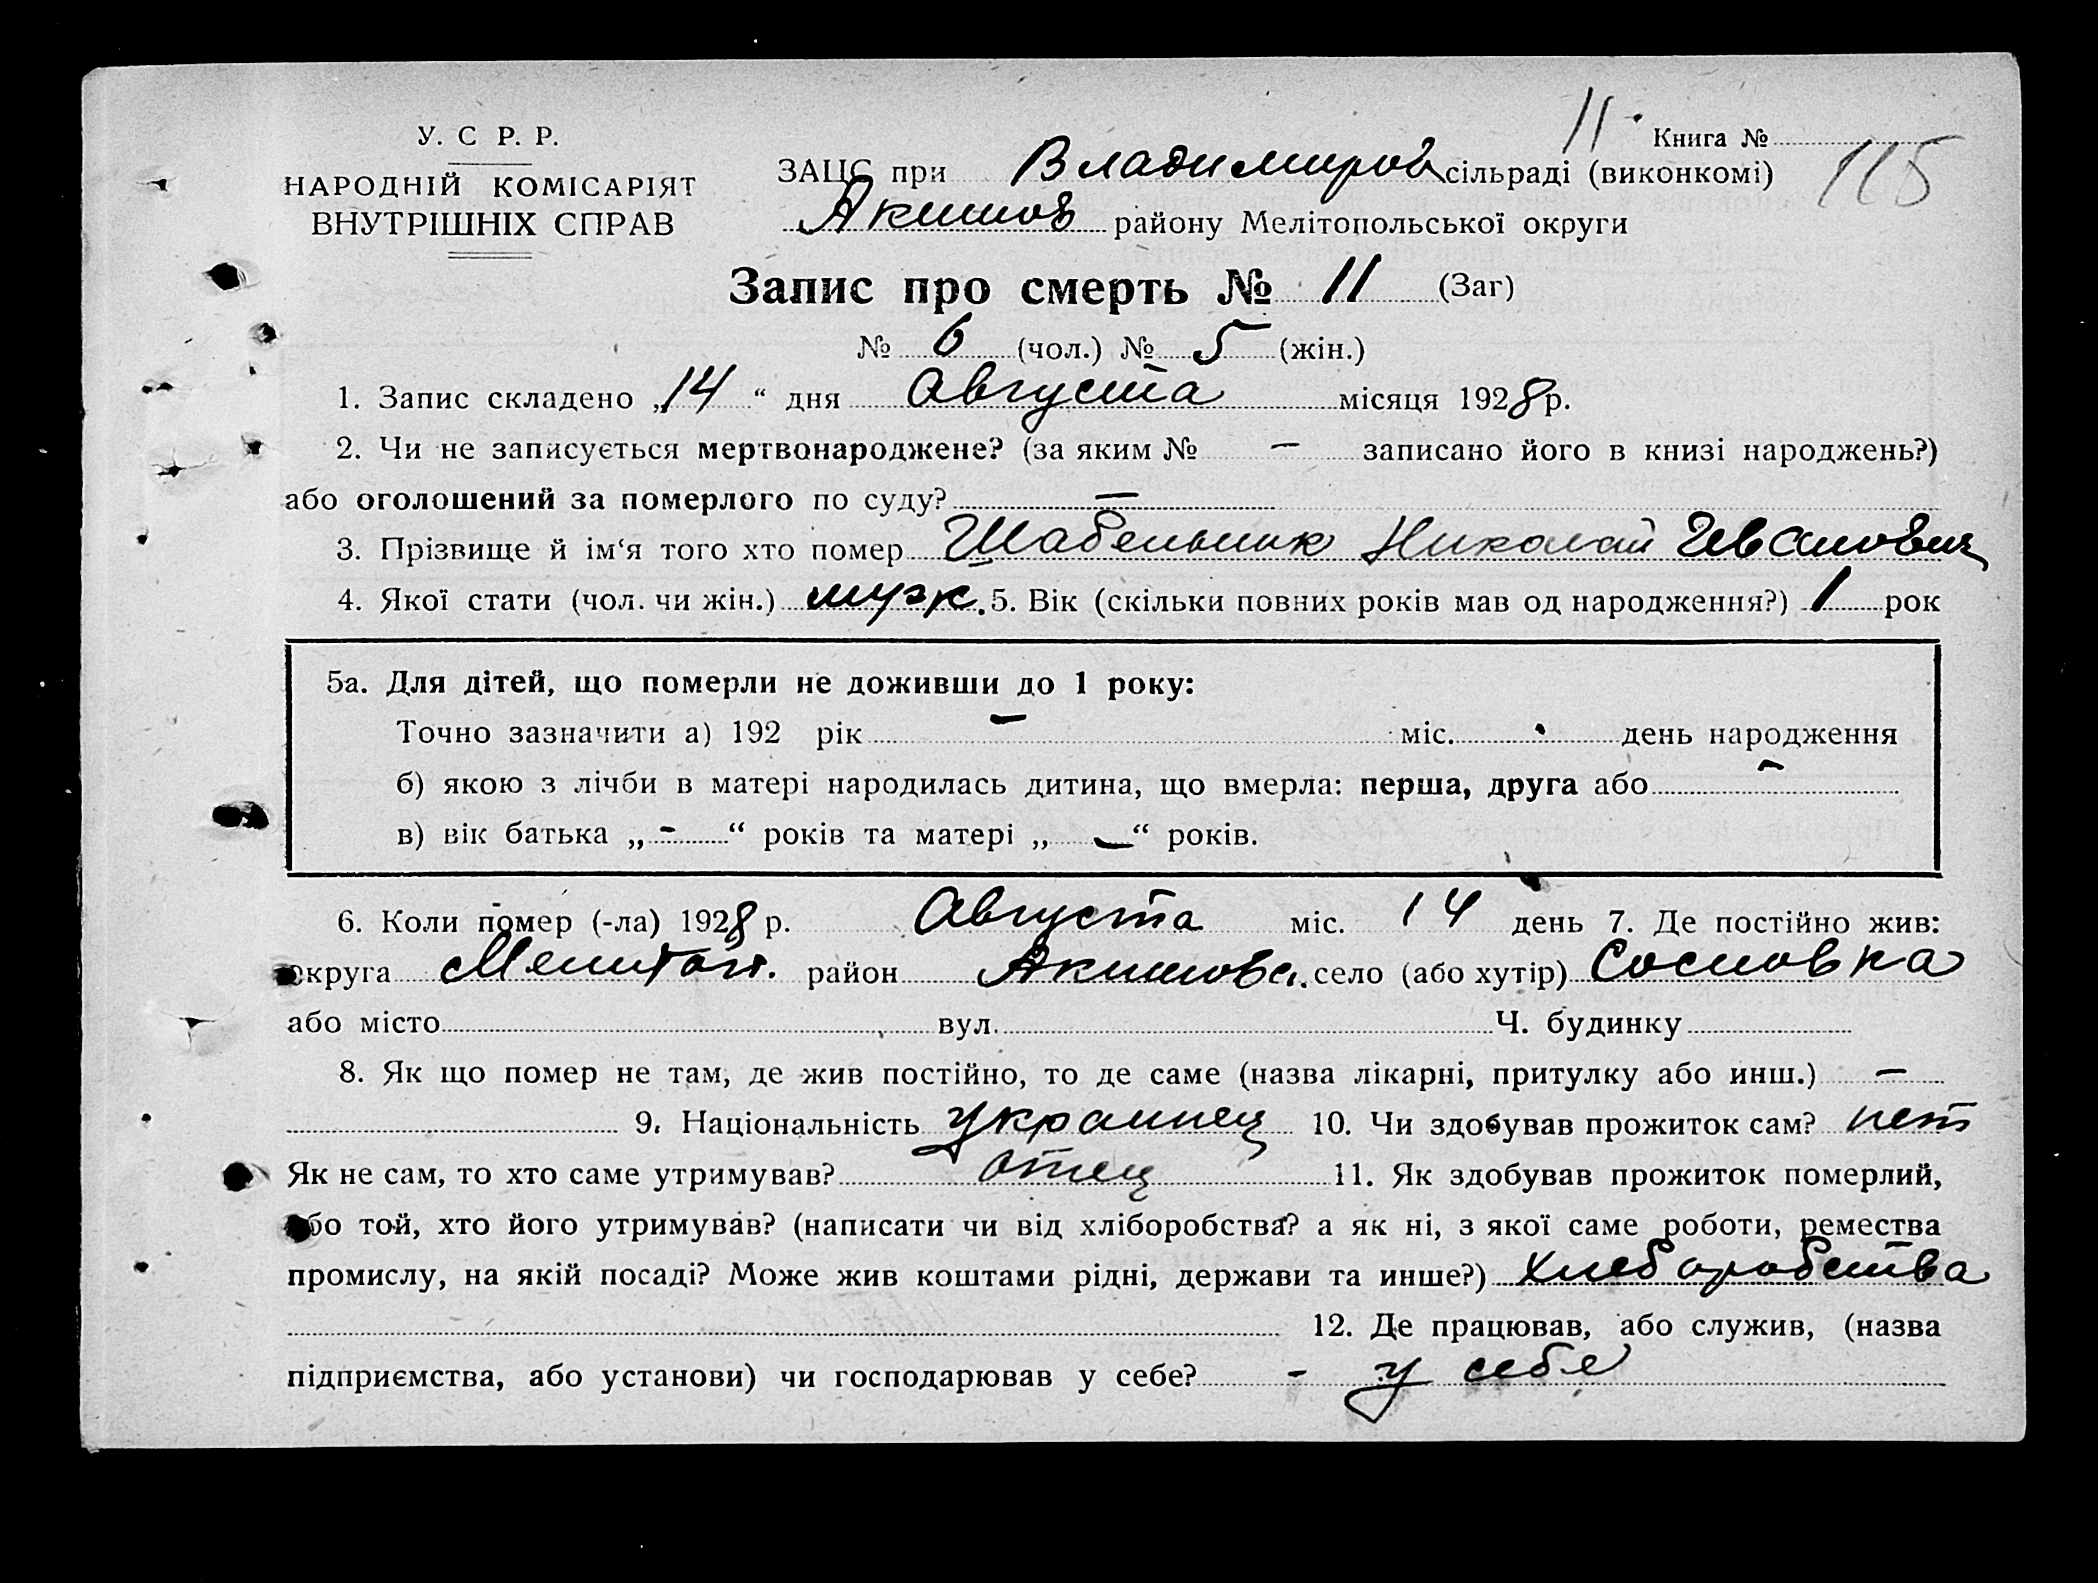 11.
Книга №
115
У. С Р. Р.
НАРОДНІЙ КОМІСАРІЯТ
ВНУТРІШНІХ СПРАВ
ЗАЦС при Владимиров сільраді (виконкомі)
Акимов району Мелітопольської округи
Запис про смерть № 11 (Заг)
№ 6 (чол.) № 5 (жін.)
1. Запис складено „14“ дня Августа місяця 1928 р.
2. Чи не записується мертвонароджене? (за яким № — записано його в книзі народжень?)
або оголошений за померлого по суду? —
3. Прізвище й ім‘я того хто помер Шабельник Николай Иванович
4. Якої стати (чол. чи жін.) муж. 5. Вік (скільки повних років мав од народження?) 1 рок
5а. Для дітей, що померли не доживши до 1 року:
Точно зазначити а) 192 рік — міс. день народження
б) якою з лічби в матері народилась дитина, що вмерла: перша, друга або —
в) вік батька „ - “ років та матері „ — “ років.
6. Коли помер (-ла) 1928 р. Августа міс. 14 день 7. Де постійно жив:
округа Мелитоп. район Акимова. село (або хутір) Сосновка
або місто вул. Ч. будинку
8. Як що помер не там, де жив постійно, то де саме (назва лікарні, притулку або инш.) —
9. Національність украинец 10. Чи здобував прожиток сам? нет
Як не сам, то хто саме утримував? отец 11. Як здобував прожиток померлий,
або той, хто його утримував? (написати чи від хліборобства? а як ні, з якої саме роботи, ремества
промислу, на якій посаді? Може жив коштами рідні, держави та инше?) хлеборобства
12. Де працював, або служив, (назва
підприємства, або установи) чи господарював у себе? - у себе